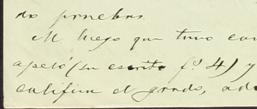 de pruebas
M luego que tuvo
apeló (en escrito fº 4) y
califica el grado,